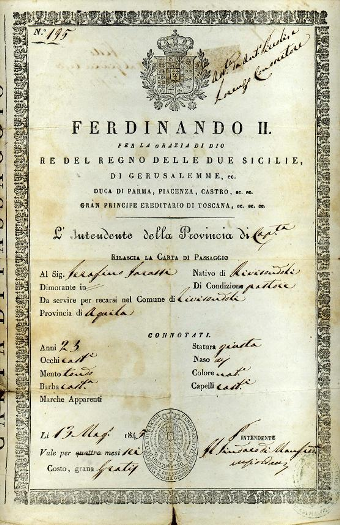 N.° 195
FERDINANDO II.
PER LA GRAZIA DI DIO
RE DEL REGNO DELLE DUE SICILIE,
DI GERUSALEMME, ec.
DUCA DI PARMA, PIACENZA, CASTRO, ec. ec.
GRAN PRINCIPE EREDITARIO DI TOSCANA, ec. ec. ec.
L'Intendente della Provincia di
RILASCIA LA CARTA DI PASSAGGIO
Al Sig. Serafino Nativo di Rivisondoli
Dimorante in Di Condizione pastore
Da servire per recarsi nel Comune di Rivisondoli
Provincia di Aquila
CONNOTATI.
Anni 23 Statura giusta
Occhi cast.i Naso
Mento tondo Colore nat.e
Barba cast.a Capelli cast.i
Marche Apparenti
Li 13 Mag. 184
Vale per quattro mesi sei
Costo, grana Gratis
L'INTENDENTE
Il Sindaco di
CARTA DI PASSAGGIO